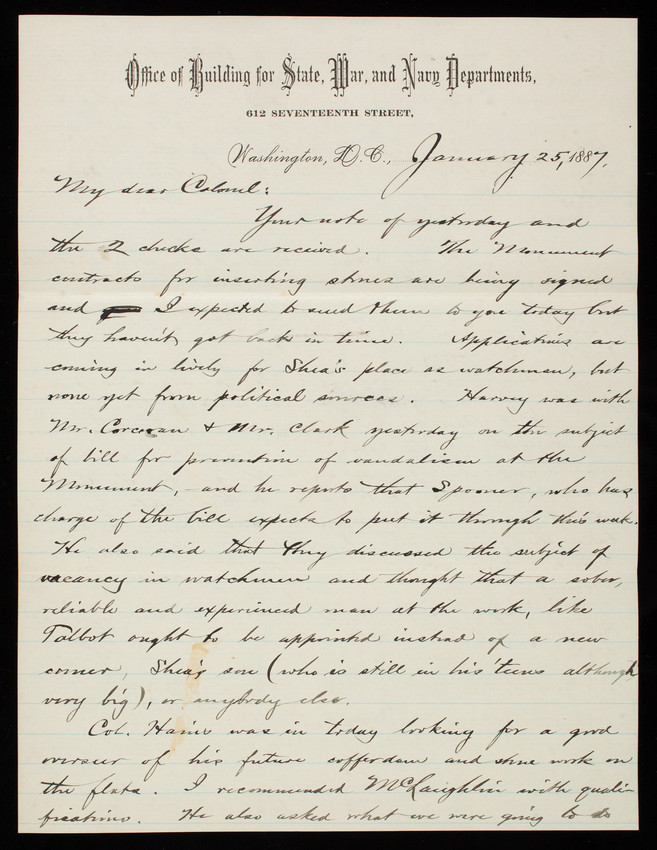 Office of Building for State, War, and Navy Departments,
612 SEVENTEENTH STREET,
Washington, D.C., January 25, 1887.
My dear Colonel:
Your note of yesterday and
the 2 checks are received. The Monument
contracts for inserting stones are being signed
and I expected to send them to you today but
they haven't got back in time. Applications are
coming in lively for Shea's place as watchman, but
none yet from political sources. Harvey was with
Mr. Corcoran & Mr. Clark yesterday on the subject
of bill for prevention of vandalism at the
Monument, and he reports that Spooner, who has
charge of the bill expects to put it through this week.
He also said that they discussed the subject of
vacancy in watchmen and thought that a sober,
reliable and experienced man at the work, like
Talbot ought to be appointed instead of a new
comer, Shea's son (who is still in his 'teens although
very big), or anybody else.
Col. Hains was in today looking for a good
overseer of his future cofferdam and stone work on
the flats. I recommended McLaughlin with quali-
fications. He also asked what we were going to do